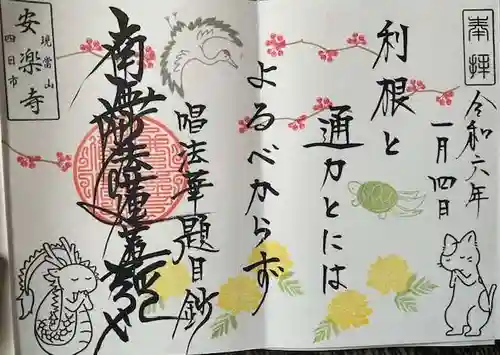 奉拝
令和六年
一月四日
利根と
通力とには
よるべからず
唱法華題目鈔
南無妙法蓮華経
現當山
安楽寺
四日市